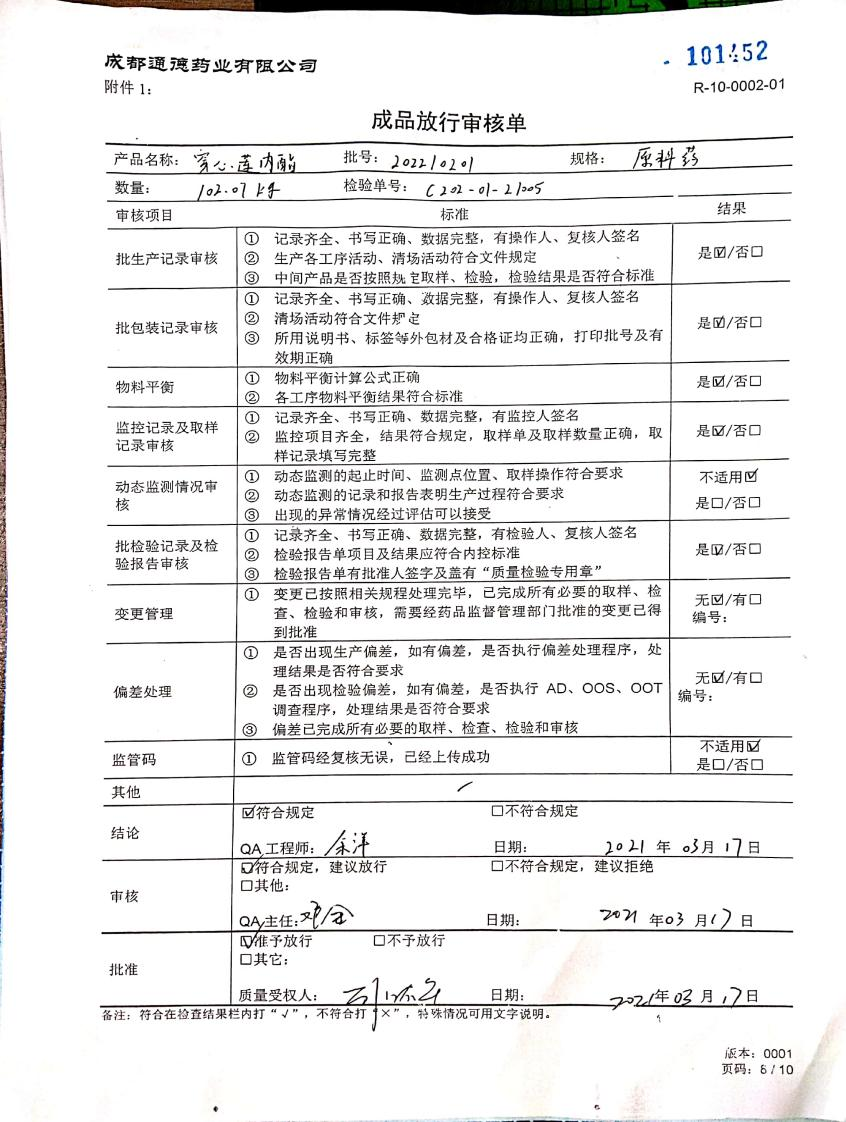 成都通德药业有限公司
101452
附件 1：
R-10-0002-01
成品放行审核单
产品名称：穿心莲内酯 批号：202210201 规格：原料药
数量：102.07 kg 检验单号：C202-01-21005
审核项目 标准 结果
批生产记录审核
① 记录齐全、书写正确、数据完整，有操作人、复核人签名
② 生产各工序活动、清场活动符合文件规定
③ 中间产品是否按照规定取样、检验，检验结果是否符合标准
是☑/否□
批包装记录审核
① 记录齐全、书写正确、数据完整，有操作人、复核人签名
② 清场活动符合文件规定
③ 所用说明书、标签等外包材及合格证均正确，打印批号及有
效期正确
是☑/否□
物料平衡
① 物料平衡计算公式正确
② 各工序物料平衡结果符合标准
是☑/否□
监控记录及取样
记录审核
① 记录齐全、书写正确、数据完整，有监控人签名
② 监控项目齐全，结果符合规定，取样单及取样数量正确，取
样记录填写完整
是☑/否□
动态监测情况审
核
① 动态监测的起止时间、监测点位置、取样操作符合要求
② 动态监测的记录和报告表明生产过程符合要求
③ 出现的异常情况经过评估可以接受
不适用☑
是□/否□
批检验记录及检
验报告审核
① 记录齐全、书写正确、数据完整，有检验人、复核人签名
② 检验报告单项目及结果应符合内控标准
③ 检验报告单有批准人签字及盖有“质量检验专用章”
是☑/否□
变更管理
① 变更已按照相关规程处理完毕，已完成所有必要的取样、检
查、检验和审核，需要经药品监督管理部门批准的变更已得
到批准
无☑/有□
编号：
偏差处理
① 是否出现生产偏差，如有偏差，是否执行偏差处理程序，处
理结果是否符合要求
② 是否出现检验偏差，如有偏差，是否执行 AD、OOS、OOT
调查程序，处理结果是否符合要求
③ 偏差已完成所有必要的取样、检查、检验和审核
无☑/有□
编号：
监管码
① 监管码经复核无误，已经上传成功
不适用☑
是□/否□
其他 /
结论
☑符合规定 □不符合规定
QA 工程师：余洋 日期：2021 年 03月 17日
审核
☑符合规定，建议放行 □不符合规定，建议拒绝
□其他：
QA 主任： 日期：2021 年03 月17日
批准
☑准予放行 □不予放行
□其它：
质量受权人： 日期：2021年03 月17日
备注：符合在检查结果栏内打“√”，不符合打“×”，特殊情况可用文字说明。
版本：0001
页码：8 / 10